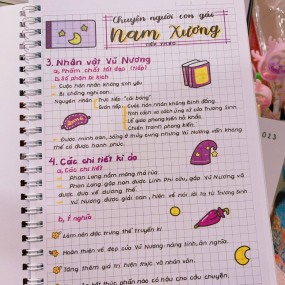 Chuyện người con gái
Nam Xương
3. Nhân vật Vũ Nương
a, Phẩm chất tốt đẹp (tiếp)
b, Số phận bi kịch
Cuộc hôn nhân không tình yêu
Bị chồng nghi oan
Nguyên nhân
Trực tiếp: "cái bóng"
Gián tiếp:
Cuộc hôn nhân không bình đẳng.
Tính cách và cách ứng xử của Trương Sinh.
Lễ giáo phong kiến hà khắc.
Chiến tranh phong kiến.
Được minh oan, sống ở thủy cung nhưng Vũ Nương vẫn không
thể có được hạnh phúc.
4. Các chi tiết kì ảo
a, Các chi tiết
Phan Lang nằm mộng thả rùa.
Phan Lang gặp nạn được Linh Phi cứu, gặp Vũ Nương và
được đưa về dương thế.
Vũ Nương được giải oan, hiện về nói lời tạ từ Trương Sinh
b, Ý nghĩa
Làm nên đặc trưng thể truyền kì
Hoàn thiện vẻ đẹp của Vũ Nương: nặng tình, ân nghĩa.
Tăng thêm giá trị hiện thực và nhân văn.
kết thúc phần nào có hậu cho câu chuyện,
013